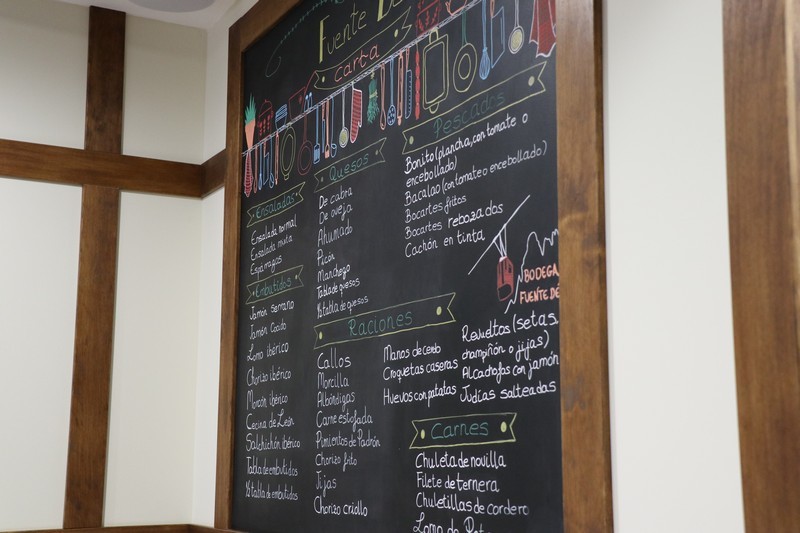 Fuente Dé
carta
Ensaladas
Ensalada normal
Ensalada mixta
Espárragos
Embutidos
Jamón serrano
Jamón Cocido
Lomo ibérico
Chorizo ibérico
Morcón ibérico
Cecina de León
Salchichón ibérico
Tabla de embutidos
½ tabla de embutidos
Quesos
De cabra
De oveja
Ahumado
Picón
Manchego
Tabla de quesos
½ tabla de quesos
Pescados
Bonito (plancha, con tomate o
encebollado)
Bacalao (con tomate o encebollado)
Bocartes fritos
Bocartes rebozados
Cachón en tinta
BODEGA
FUENTE DÉ
Raciones
Callos
Morcilla
Albóndigas
Carne estofada
Pimientos de Padrón
Chorizo frito
Jijas
Chorizo criollo
Manos de cerdo
Croquetas caseras
Huevos con patatas
Revueltos (setas,
champiñón o jijas)
Alcachofas con jamón
Judías salteadas
Carnes
Chuleta de novilla
Filete de ternera
Chuletillas de cordero
Lomo de